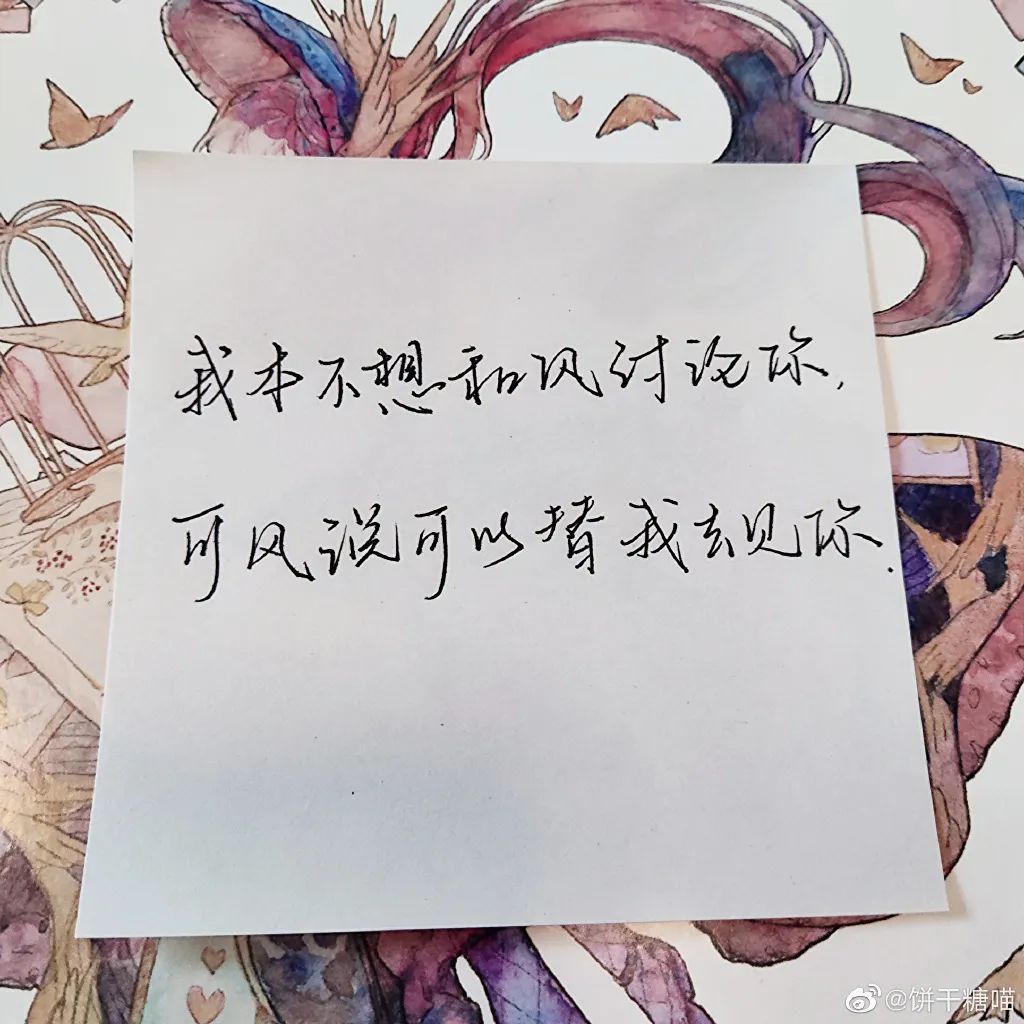 我本不想和风讨论你，
可风说可以替我去见你.
@饼干糖喵